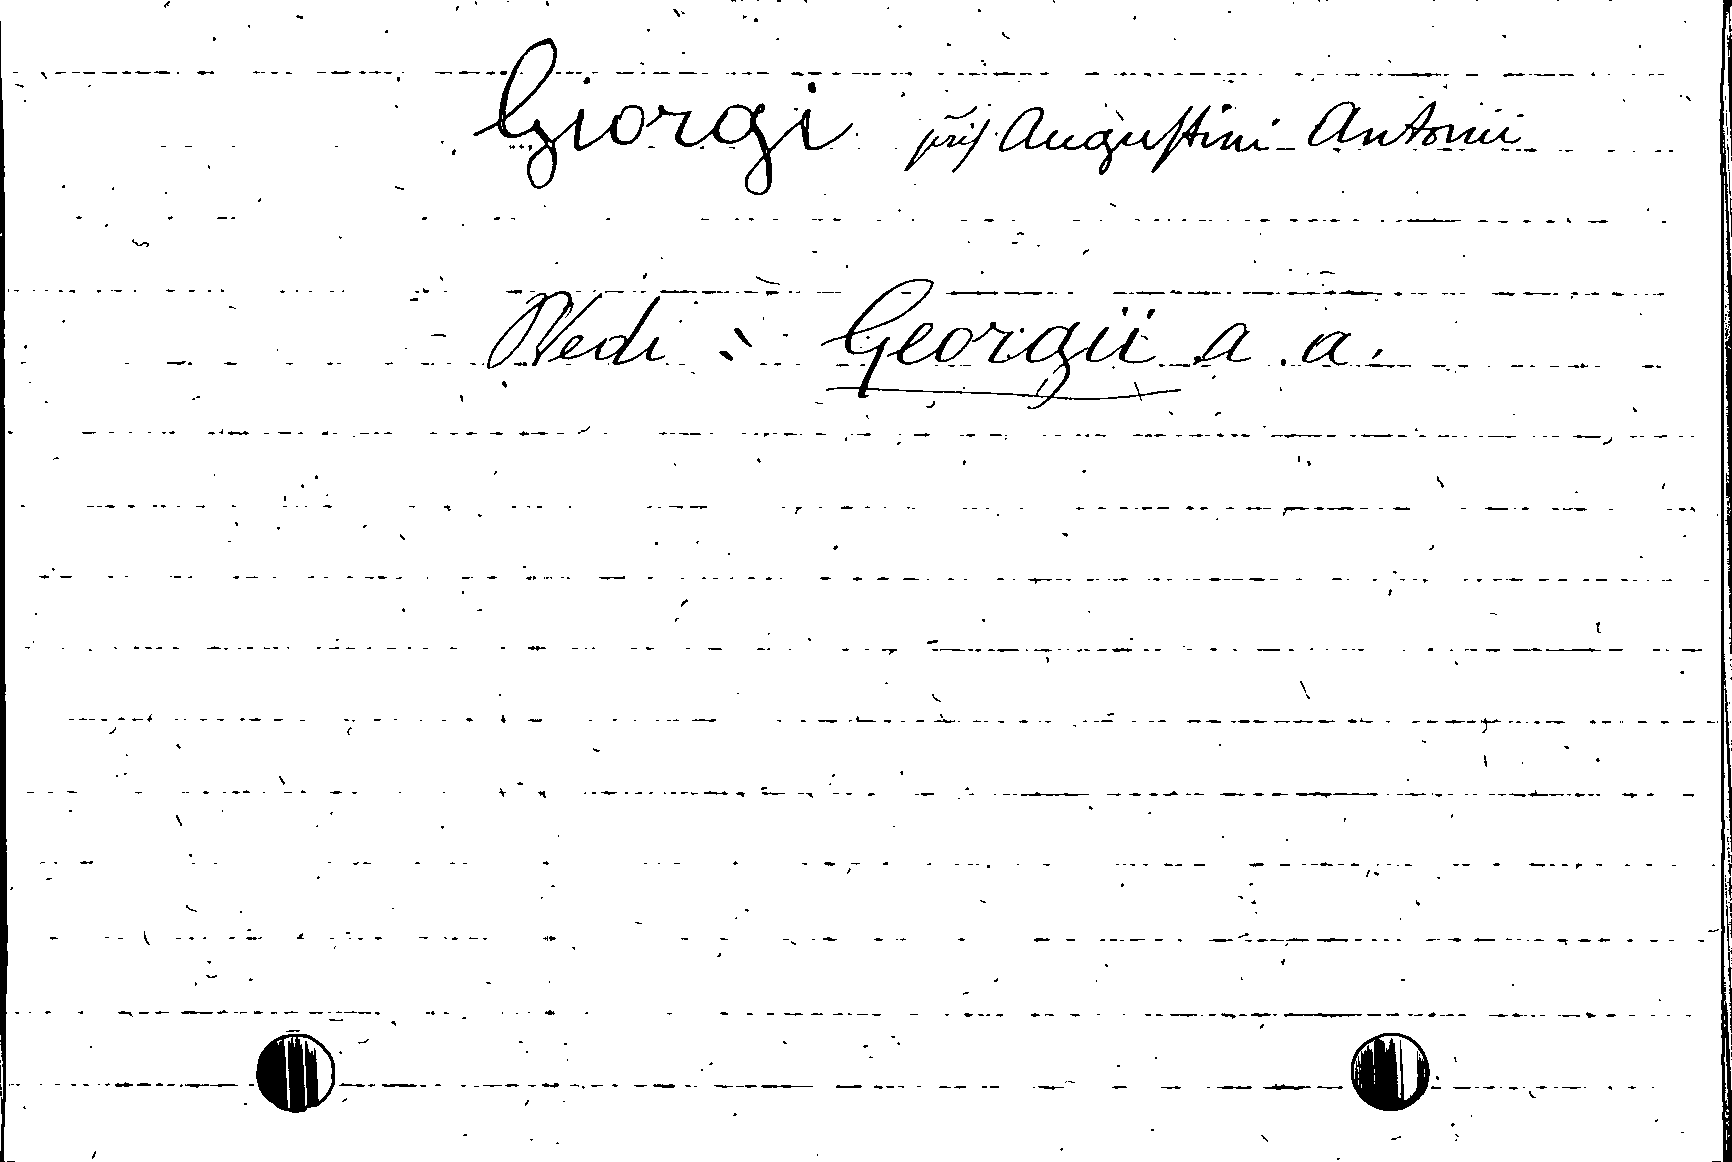 Giorgi Augustini Antonii
Vedi : Georgii a. a.